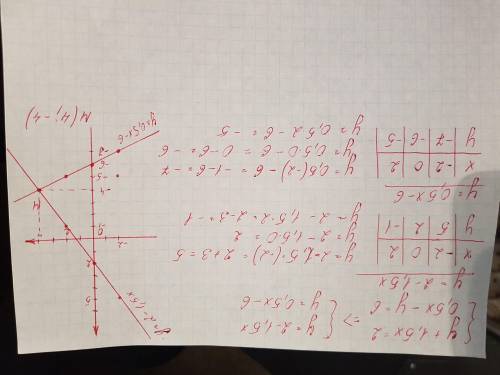 { y + 1,5x = 2 => { y = 2 - 1,5x
{ 0,5x - y = 6 { y = 0,5x - 6
y = 2 - 1,5x
x | -2 | 0 | 2
y | 5 | 2 | -1
y = 2 - 1,5·(-2) = 2 + 3 = 5
y = 2 - 1,5·0 = 2
y = 2 - 1,5·2 = 2 - 3 = -1
y = 0,5x - 6
x | -2 | 0 | 2
y | -7 | -6 | -5
y = 0,5·(-2) - 6 = -1 - 6 = -7
y = 0,5·0 - 6 = 0 - 6 = -6
y = 0,5·2 - 6 = -5
y = 2 - 1,5x
5
2
-2
0
-4
-5
-6
-7
M
y = 0,5x - 6
M(4; -4)